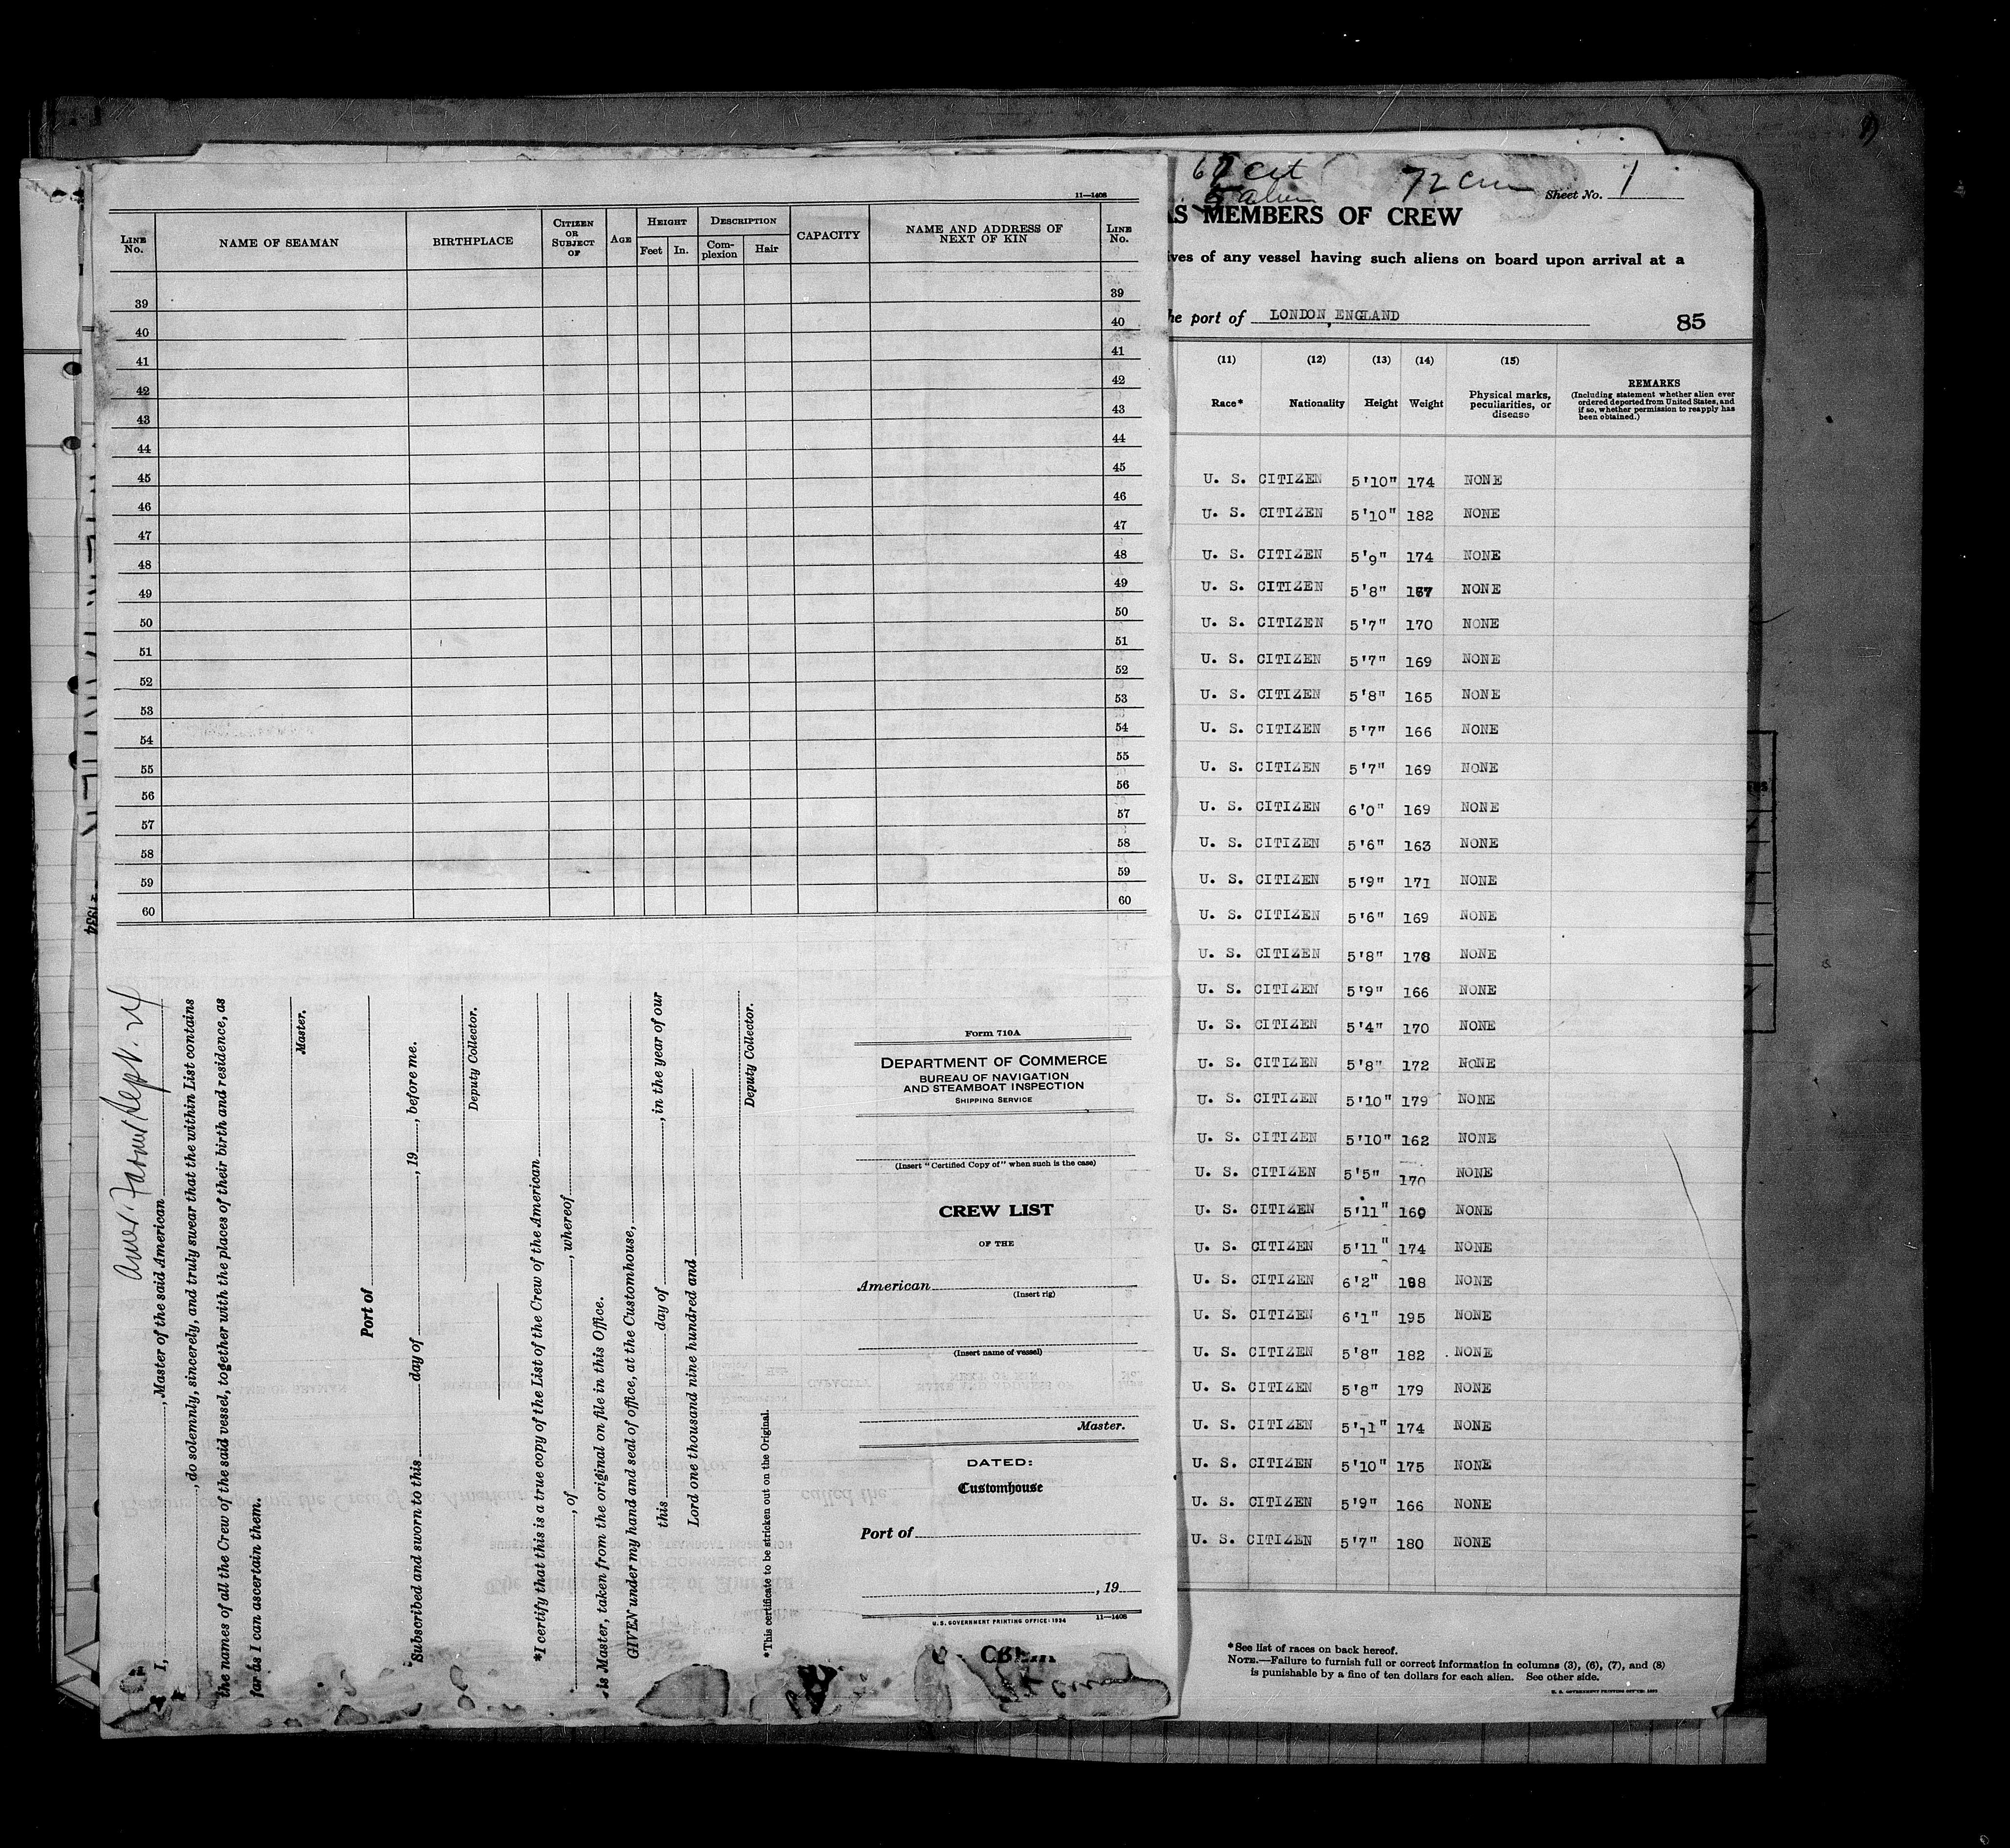 11—1408
LINE No. NAME OF SEAMAN BIRTHPLACE CITIZEN OR SUBJECT OF AGE HEIGHT Feet In. DESCRIPTION Complexion Hair CAPACITY NAME AND ADDRESS OF NEXT OF KIN LINE No.
39 39
40 40
41 41
42 42
43 43
44 44
45 45
46 46
47 47
48 48
49 49
50 50
51 51
52 52
53 53
54 54
55 55
56 56
57 57
58 58
59 59
60 60
Amer. Farmer Sept. 24
I, , Master of the said American
, do solemnly, sincerely, and truly swear that the within List contains
the names of all the Crew of the said vessel, together with the places of their birth and residence, as
far as I can ascertain them.
Master.
Port of
Subscribed and sworn to this day of , 19 , before me.
Deputy Collector.
*I certify that this is a true copy of the List of the Crew of the American
, of , whereof
is Master, taken from the original on file in this Office.
GIVEN under my hand and seal of office, at the Customhouse,
this day of , in the year of our
Lord one thousand nine hundred and
Deputy Collector.
*This certificate to be stricken out on the Original.
Form 710A
DEPARTMENT OF COMMERCE
BUREAU OF NAVIGATION
AND STEAMBOAT INSPECTION
SHIPPING SERVICE
(Insert "Certified Copy of" when such is the case)
CREW LIST
OF THE
American
(Insert rig)
(Insert name of vessel)
Master.
DATED:
Customhouse
Port of
, 19
U. S. GOVERNMENT PRINTING OFFICE: 1934 11—1408
72 Crew Sheet No. 1
5 alien
AS MEMBERS OF CREW
ives of any vessel having such aliens on board upon arrival at a
he port of LONDON, ENGLAND 85
(11) (12) (13) (14) (15)
Race* Nationality Height Weight Physical marks, peculiarities, or disease REMARKS (Including statement whether alien ever ordered deported from United States, and if so, whether permission to reapply has been obtained.)
U. S. CITIZEN 5'10" 174 NONE
U. S. CITIZEN 5'10" 182 NONE
U. S. CITIZEN 5'9" 174 NONE
U. S. CITIZEN 5'8" 167 NONE
U. S. CITIZEN 5'7" 170 NONE
U. S. CITIZEN 5'7" 169 NONE
U. S. CITIZEN 5'8" 165 NONE
U. S. CITIZEN 5'7" 166 NONE
U. S. CITIZEN 5'7" 169 NONE
U. S. CITIZEN 6'0" 169 NONE
U. S. CITIZEN 5'6" 163 NONE
U. S. CITIZEN 5'9" 171 NONE
U. S. CITIZEN 5'6" 169 NONE
U. S. CITIZEN 5'8" 178 NONE
U. S. CITIZEN 5'9" 166 NONE
U. S. CITIZEN 5'4" 170 NONE
U. S. CITIZEN 5'8" 172 NONE
U. S. CITIZEN 5'10" 179 NONE
U. S. CITIZEN 5'10" 162 NONE
U. S. CITIZEN 5'5" 170 NONE
U. S. CITIZEN 5'11" 160 NONE
U. S. CITIZEN 5'11" 174 NONE
U. S. CITIZEN 6'2" 198 NONE
U. S. CITIZEN 6'1" 195 NONE
U. S. CITIZEN 5'8" 182 NONE
U. S. CITIZEN 5'8" 179 NONE
U. S. CITIZEN 5'11" 174 NONE
U. S. CITIZEN 5'10" 175 NONE
U. S. CITIZEN 5'9" 166 NONE
U. S. CITIZEN 5'7" 180 NONE
*See list of races on back hereof.
NOTE.—Failure to furnish full or correct information in columns (3), (6), (7), and (8)
is punishable by a fine of ten dollars for each alien. See other side.